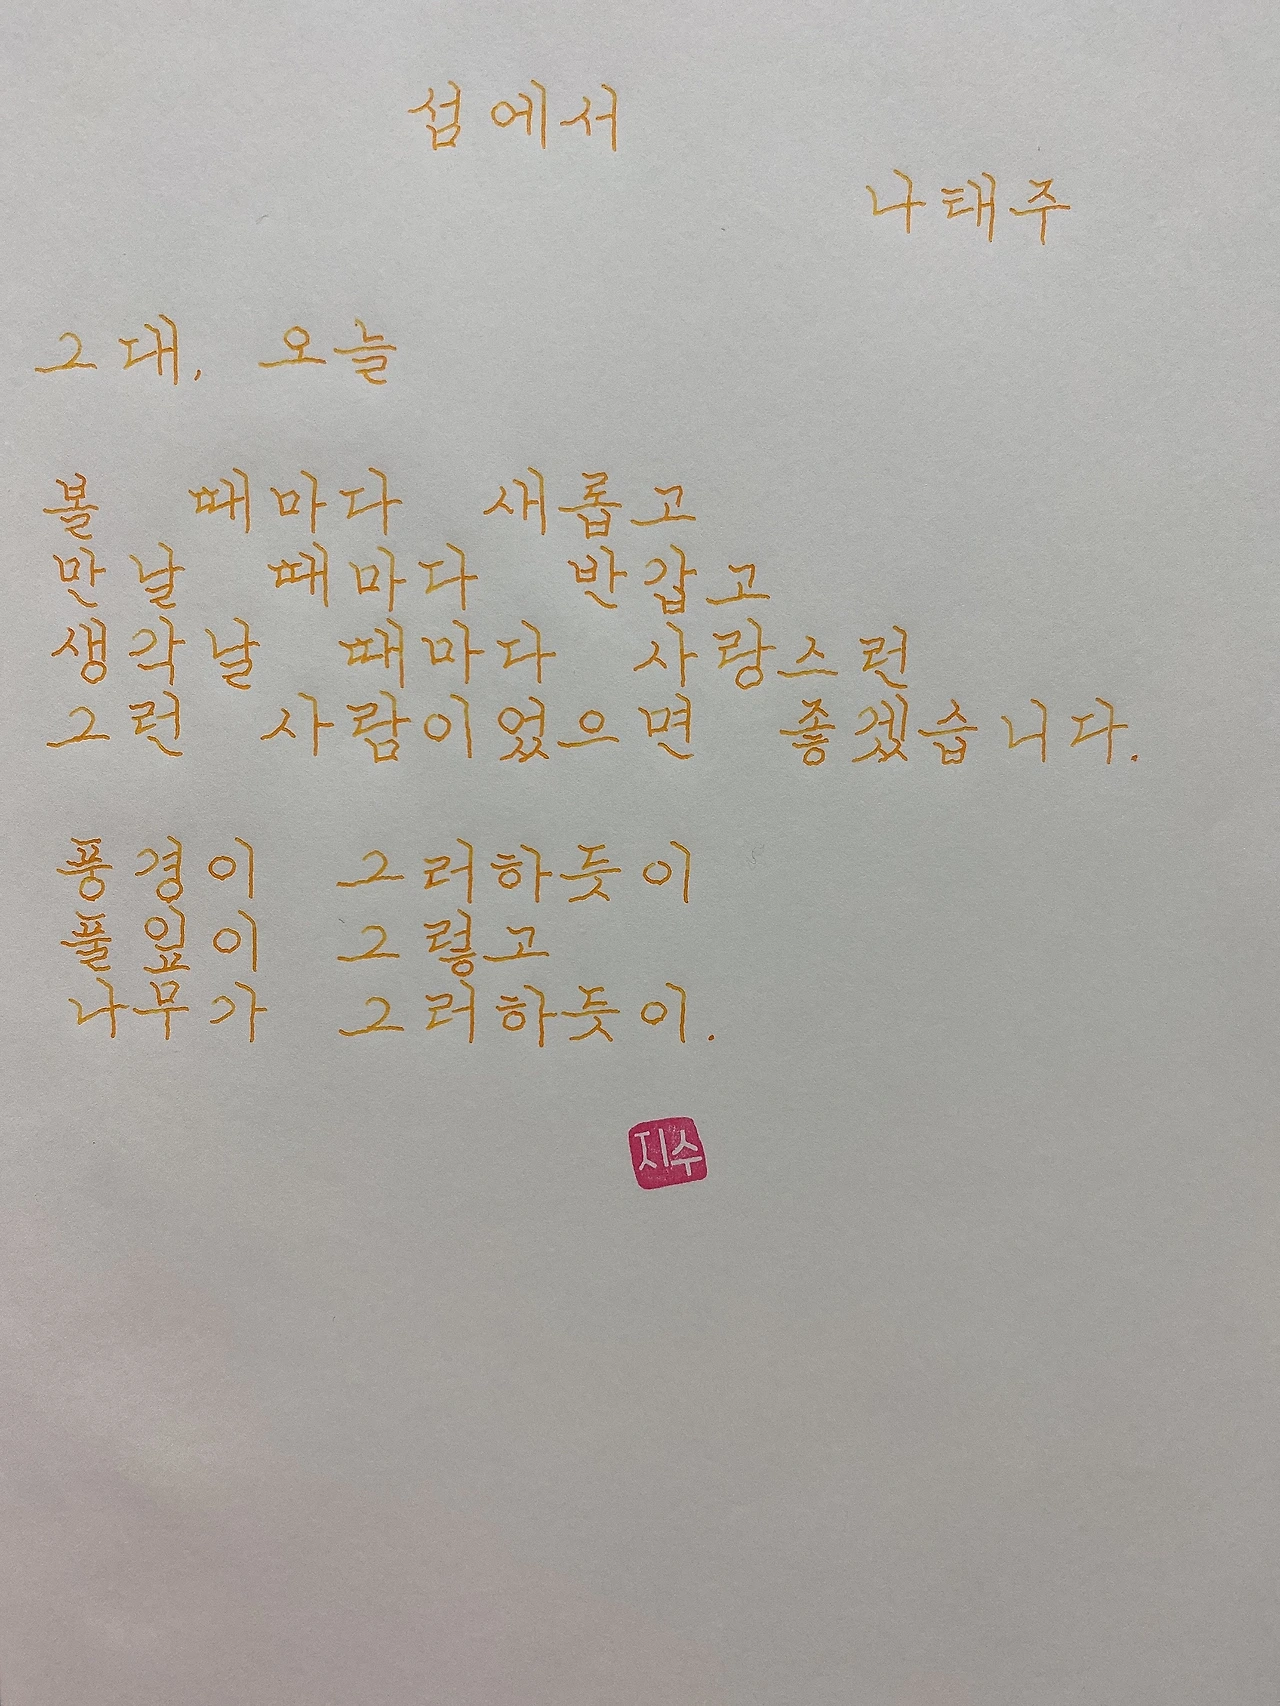 섬에서
나태주
그대, 오늘
볼 때마다 새롭고
만날 때마다 반갑고
생각날 때마다 사랑스런
그런 사람이었으면 좋겠습니다.
풍경이 그러하듯이
풀잎이 그렇고
나무가 그러하듯이.
지수